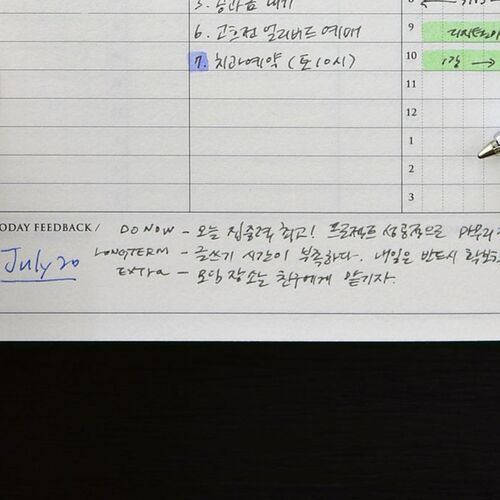 6. 고흐전 얼리버드 예매
7. 치과예약 (토 10시)
9
10
11
12
1
2
3
TODAY FEEDBACK /
July 20
DO NOW - 오늘 집중력 최고! 프로젝트 성공적으로 마무리
LONGTERM - 글쓰기 시간이 부족하다. 내일은 반드시 확보
EXTRA - 모임 장소는 친구에게 맡기자.